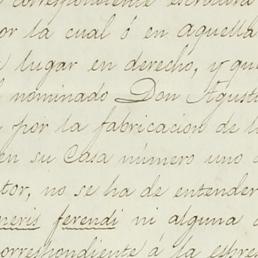 correspondiente escritura
por la cual ó en aquella
lugar en derecho, y que
nominado Don Agust
por la fabricacion de l
en su Casa número uno
tor, no se ha de entender
neris ferendi ni alguna
correspondiente á la espre